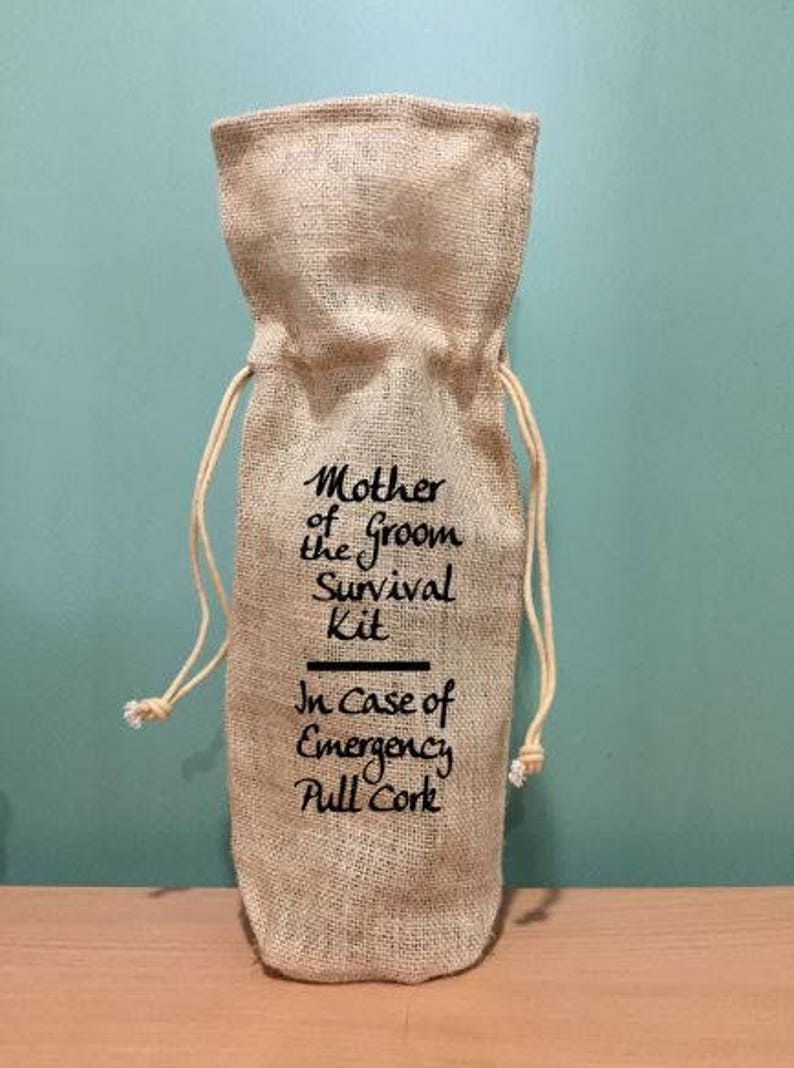 Mother
of the Groom
Survival
Kit
In Case of
Emergency
Pull Cork